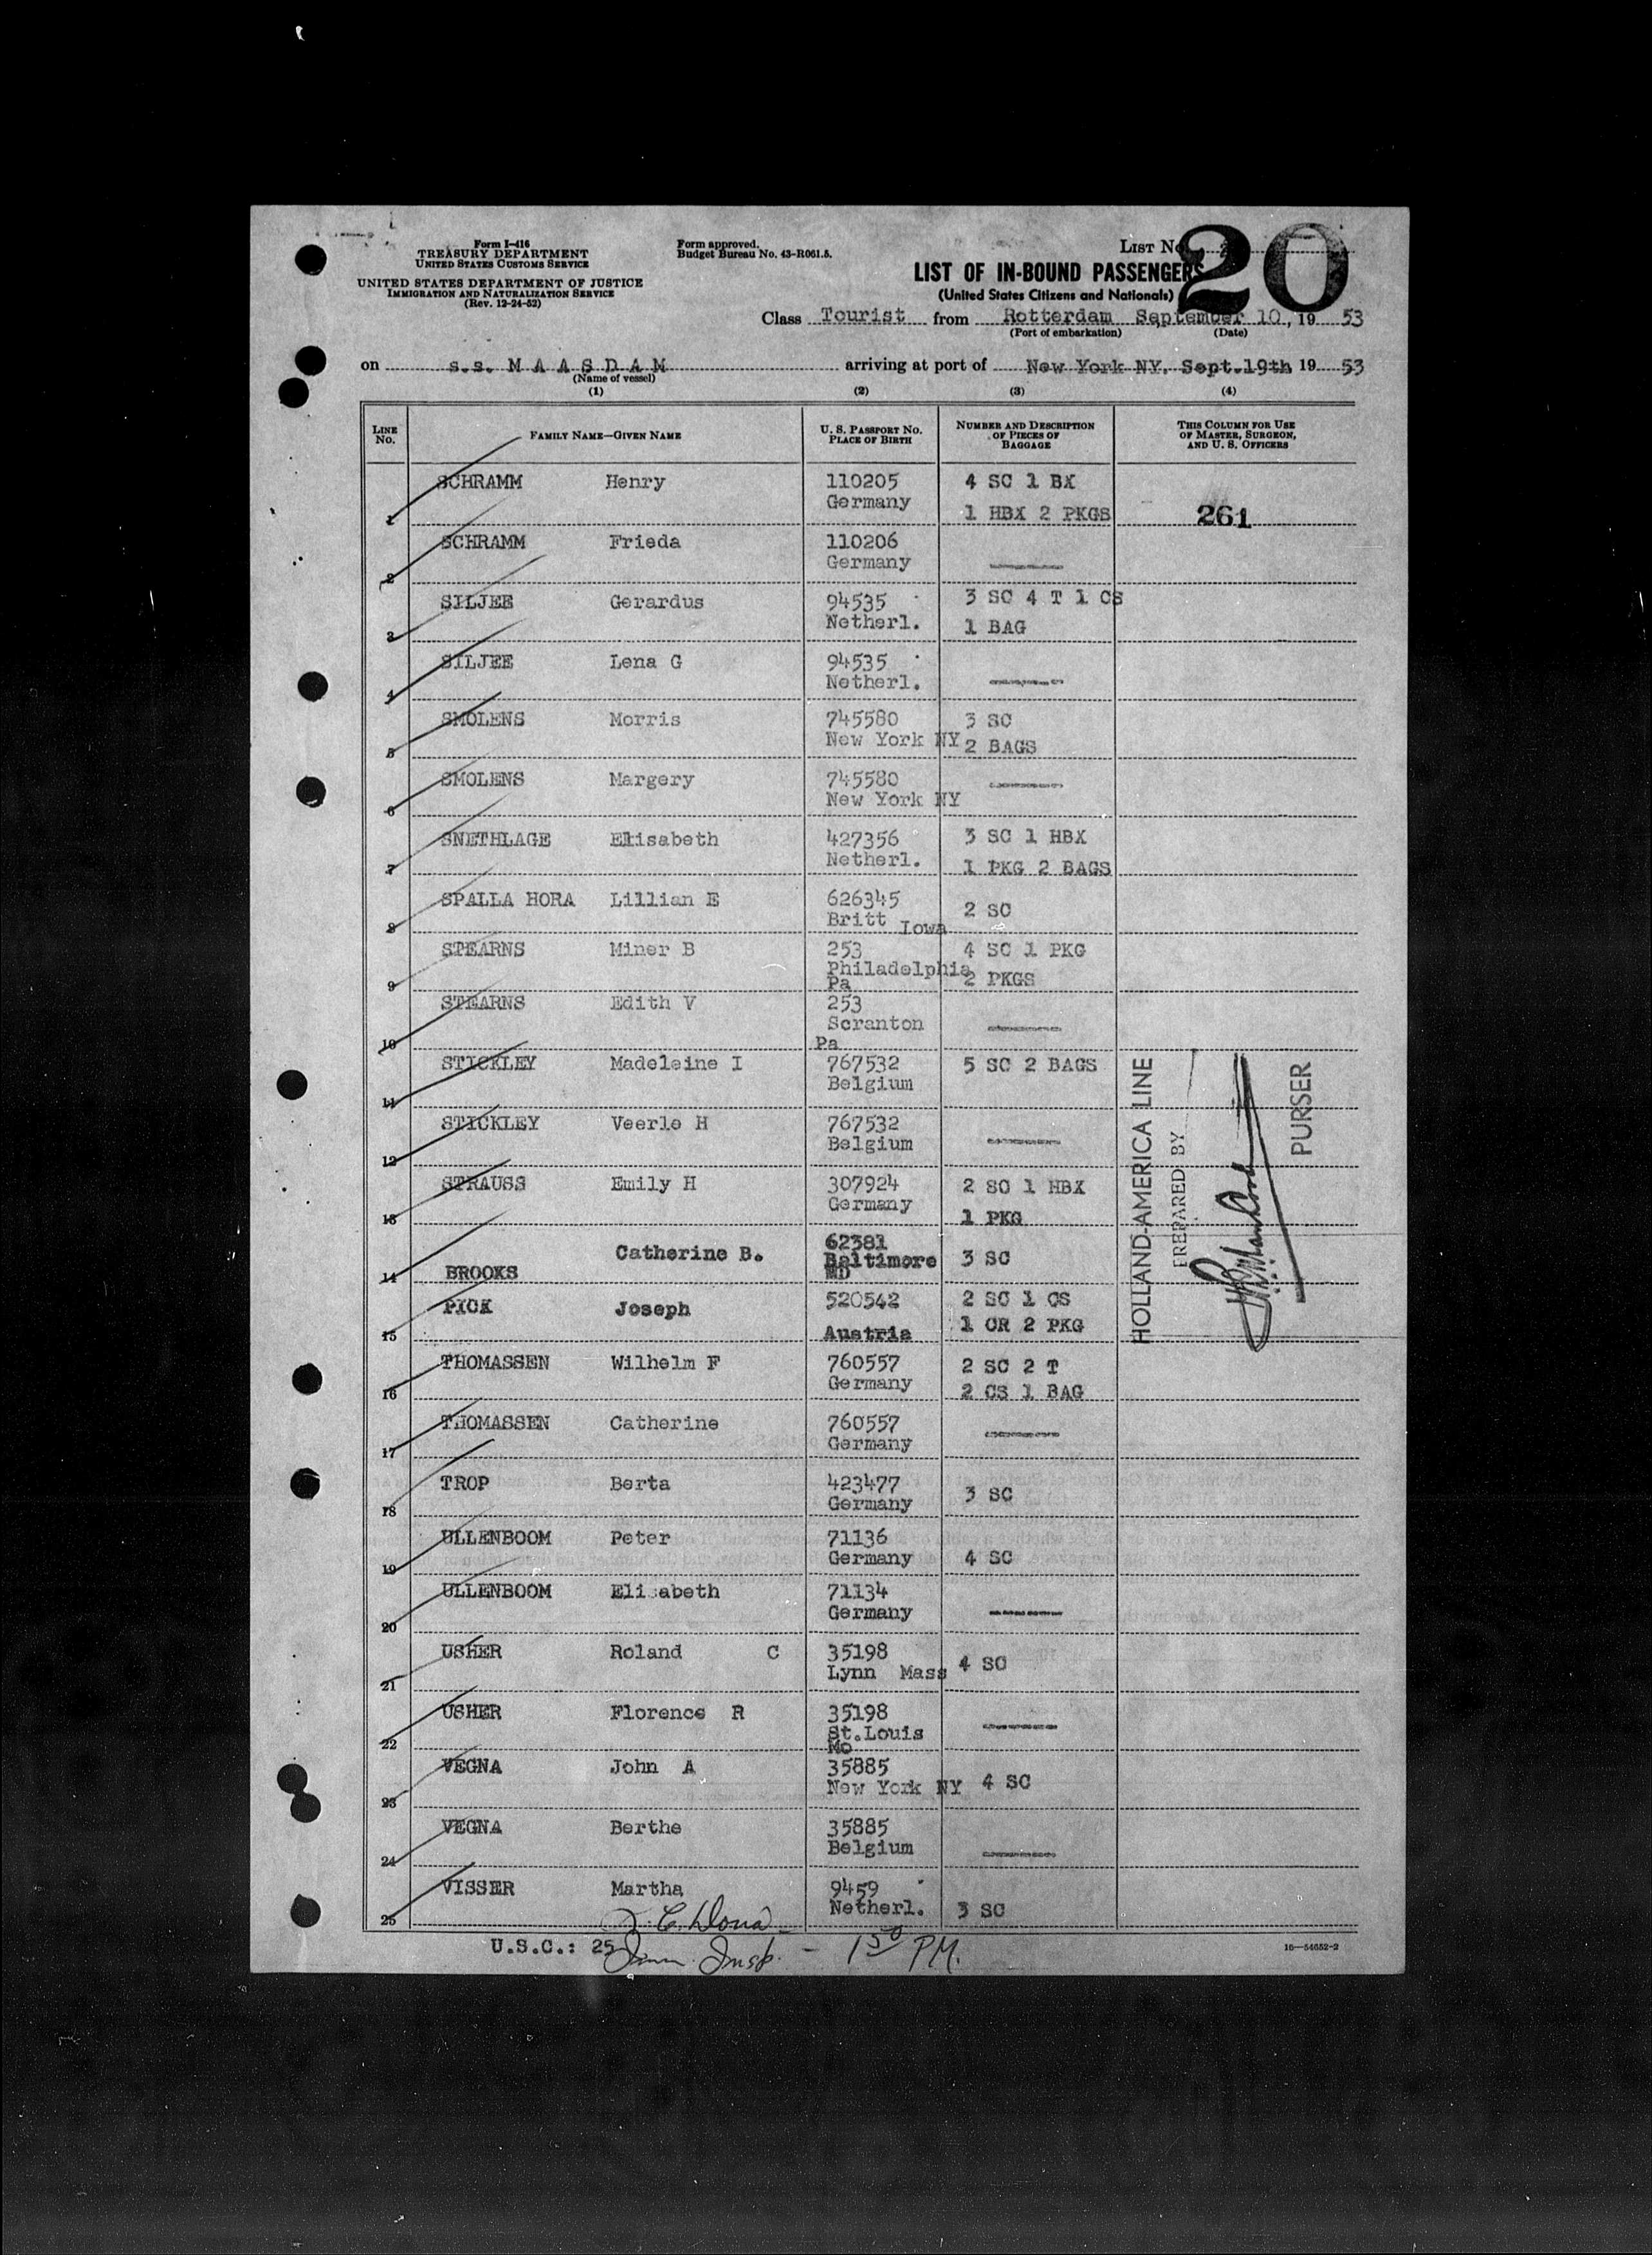 Form I-416
TREASURY DEPARTMENT
UNITED STATES CUSTOMS SERVICE
UNITED STATES DEPARTMENT OF JUSTICE
IMMIGRATION AND NATURALIZATION SERVICE
(Rev. 12-24-52)
Form approved.
Budget Bureau No. 43-R061.5.
LIST No.
20
LIST OF IN-BOUND PASSENGERS
(United States Citizens and Nationals)
Class Tourist from Rotterdam September 10, 19 53
(Port of embarkation) (Date)
on s.s. M A A S D A M arriving at port of New York NY. Sept.19th 19 53
(Name of vessel)
(1) (2) (3) (4)
LINE No. FAMILY NAME—GIVEN NAME U. S. PASSPORT No. PLACE OF BIRTH NUMBER AND DESCRIPTION OF PIECES OF BAGGAGE THIS COLUMN FOR USE OF MASTER, SURGEON, AND U. S. OFFICERS
SCHRAMM Henry 110205 4 SC 1 BX
Germany
1 1 HBX 2 PKGS 261
SCHRAMM Frieda 110206
2 Germany
SILJEE Gerardus 94535 3 SC 4 T 1 CS
3 Netherl. 1 BAG
SILJEE Lena G 94535
4 Netherl.
SMOLENS Morris 745580 3 SC
5 New York NY 2 BAGS
SMOLENS Margery 745580
6 New York NY
SNETHLAGE Elisabeth 427356 3 SC 1 HBX
7 Netherl. 1 PKG 2 BAGS
SPALLA HORA Lillian E 626345 2 SC
8 Britt Iowa
STEARNS Miner B 253 4 SC 1 PKG
9 Philadelphia Pa 2 PKGS
STEARNS Edith V 253
10 Scranton Pa
STICKLEY Madeleine I 767532 5 SC 2 BAGS
11 Belgium
STICKLEY Veerle H 767532
12 Belgium
STRAUSS Emily H 307924 2 SC 1 HBX
13 Germany 1 PKG
Catherine B. 62381
14 BROOKS Baltimore MD 3 SC
PICK Joseph 520542 2 SC 1 CS
15 Austria 1 CR 2 PKG
THOMASSEN Wilhelm F 760557 2 SC 2 T
16 Germany 2 CS 1 BAG
THOMASSEN Catherine 760557
17 Germany
TROP Berta 423477
18 Germany 3 SC
ULLENBOOM Peter 71136
19 Germany 4 SC
ULLENBOOM Elisabeth 71134
20 Germany
USHER Roland C 35198
21 Lynn Mass 4 SC
USHER Florence R 35198
22 St.Louis Mo
VEGNA John A 35885
23 New York NY 4 SC
VEGNA Berthe 35885
24 Belgium
VISSER Martha 9459
25 Netherl. 3 SC
HOLLAND-AMERICA LINE
PREPARED BY
PURSER
U.S.C.: 25
Imm. Insp. - 1 50 PM.
16—54652-2